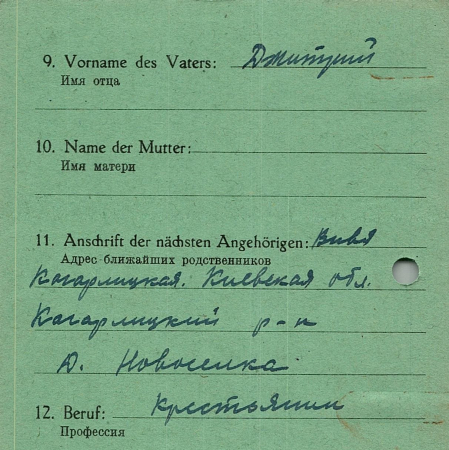 9. Vorname des Vaters: Дмитрий
Имя отца
10. Name der Mutter:
Имя матери
11. Anschrift der nächsten Angehörigen:
Адрес ближайших родственников
Кагарлицкая. Киевская обл.
Кагарлицкий р-н
д. Новоселка
12. Beruf: Крестьянин
Профессия